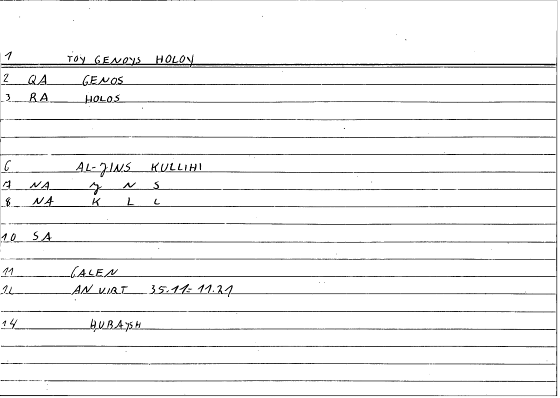 1 TOY GENOYS HOLOY
2 QA GENOS
3 RA HOLOS
6 AL-JINS KULLIHI
7 NA J N S
8 NA K L L
10 SA
11 GALEN
12 AN VIRT 35.11= 11.21
14 HUBAYSH